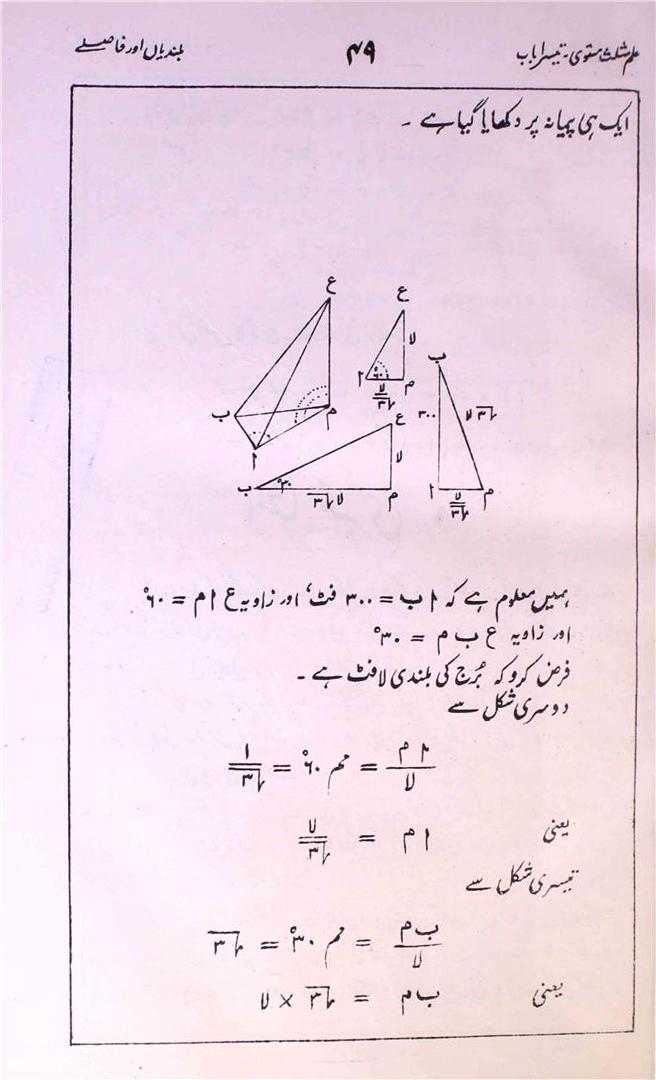 علم مثلث مستوی۔ تیسرا باب ۴۹ بلندیاں اور فاصلے
ایک ہی پیمانہ پر دکھایا گیا ہے ۔
ع
ب
ا
م
ع
لا
ا
۶۰°
م
لا/√۳
ب
۳۰۰
√۳ لا
ا
م
لا/√۳
ع
لا
ب
۳۰°
م
√۳ لا
ہمیں معلوم ہے کہ اب = ۳۰۰ فٹ، اور زاویہ ع ام = ۶۰°
اور زاویہ ع ب م = ۳۰°
فرض کرو کہ بُرج کی بلندی لا فٹ ہے ۔
دوسری شکل سے
ام/لا = مم ۶۰° = ۱/√۳
یعنی ام = لا/√۳
تیسری شکل سے
ب م/لا = مم ۳۰° = √۳
یعنی ب م = √۳ × لا